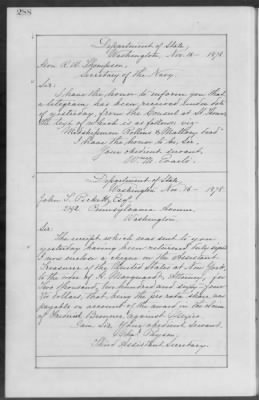 288
Department of State,
Washington, Nov. 16 - 1878.
Hon. R. W. Thompson,
Secretary of the Navy.
Sir:
I have the honor to inform you that
a telegram has been received under date
of yesterday, from the Consul at St.
the text of which is as follows: viz:
"Midshipmen Rollins & Mallory
I have the honor to be, Sir,
Your obedient servant,
Wm. M. Evarts.
Department of State,
Washington Nov. 16 - 1878.
John T. Pickett, Esq.
Pennsylvania Avenue,
Washington.
Sir:
The receipt which was sent to you
yesterday having been returned duly signed
I now enclose a cheque on the Assistant
Treasurer of the United States at New York,
to the order of Attorney, for
Two thousand, two hundred and sixty-four
dollars, that being the pro rata share now
payable on account of the award in the claim
of against Mexico.
I am Sir, Your obedient Servant,
Chas. Payson,
Third Assistant Secretary.